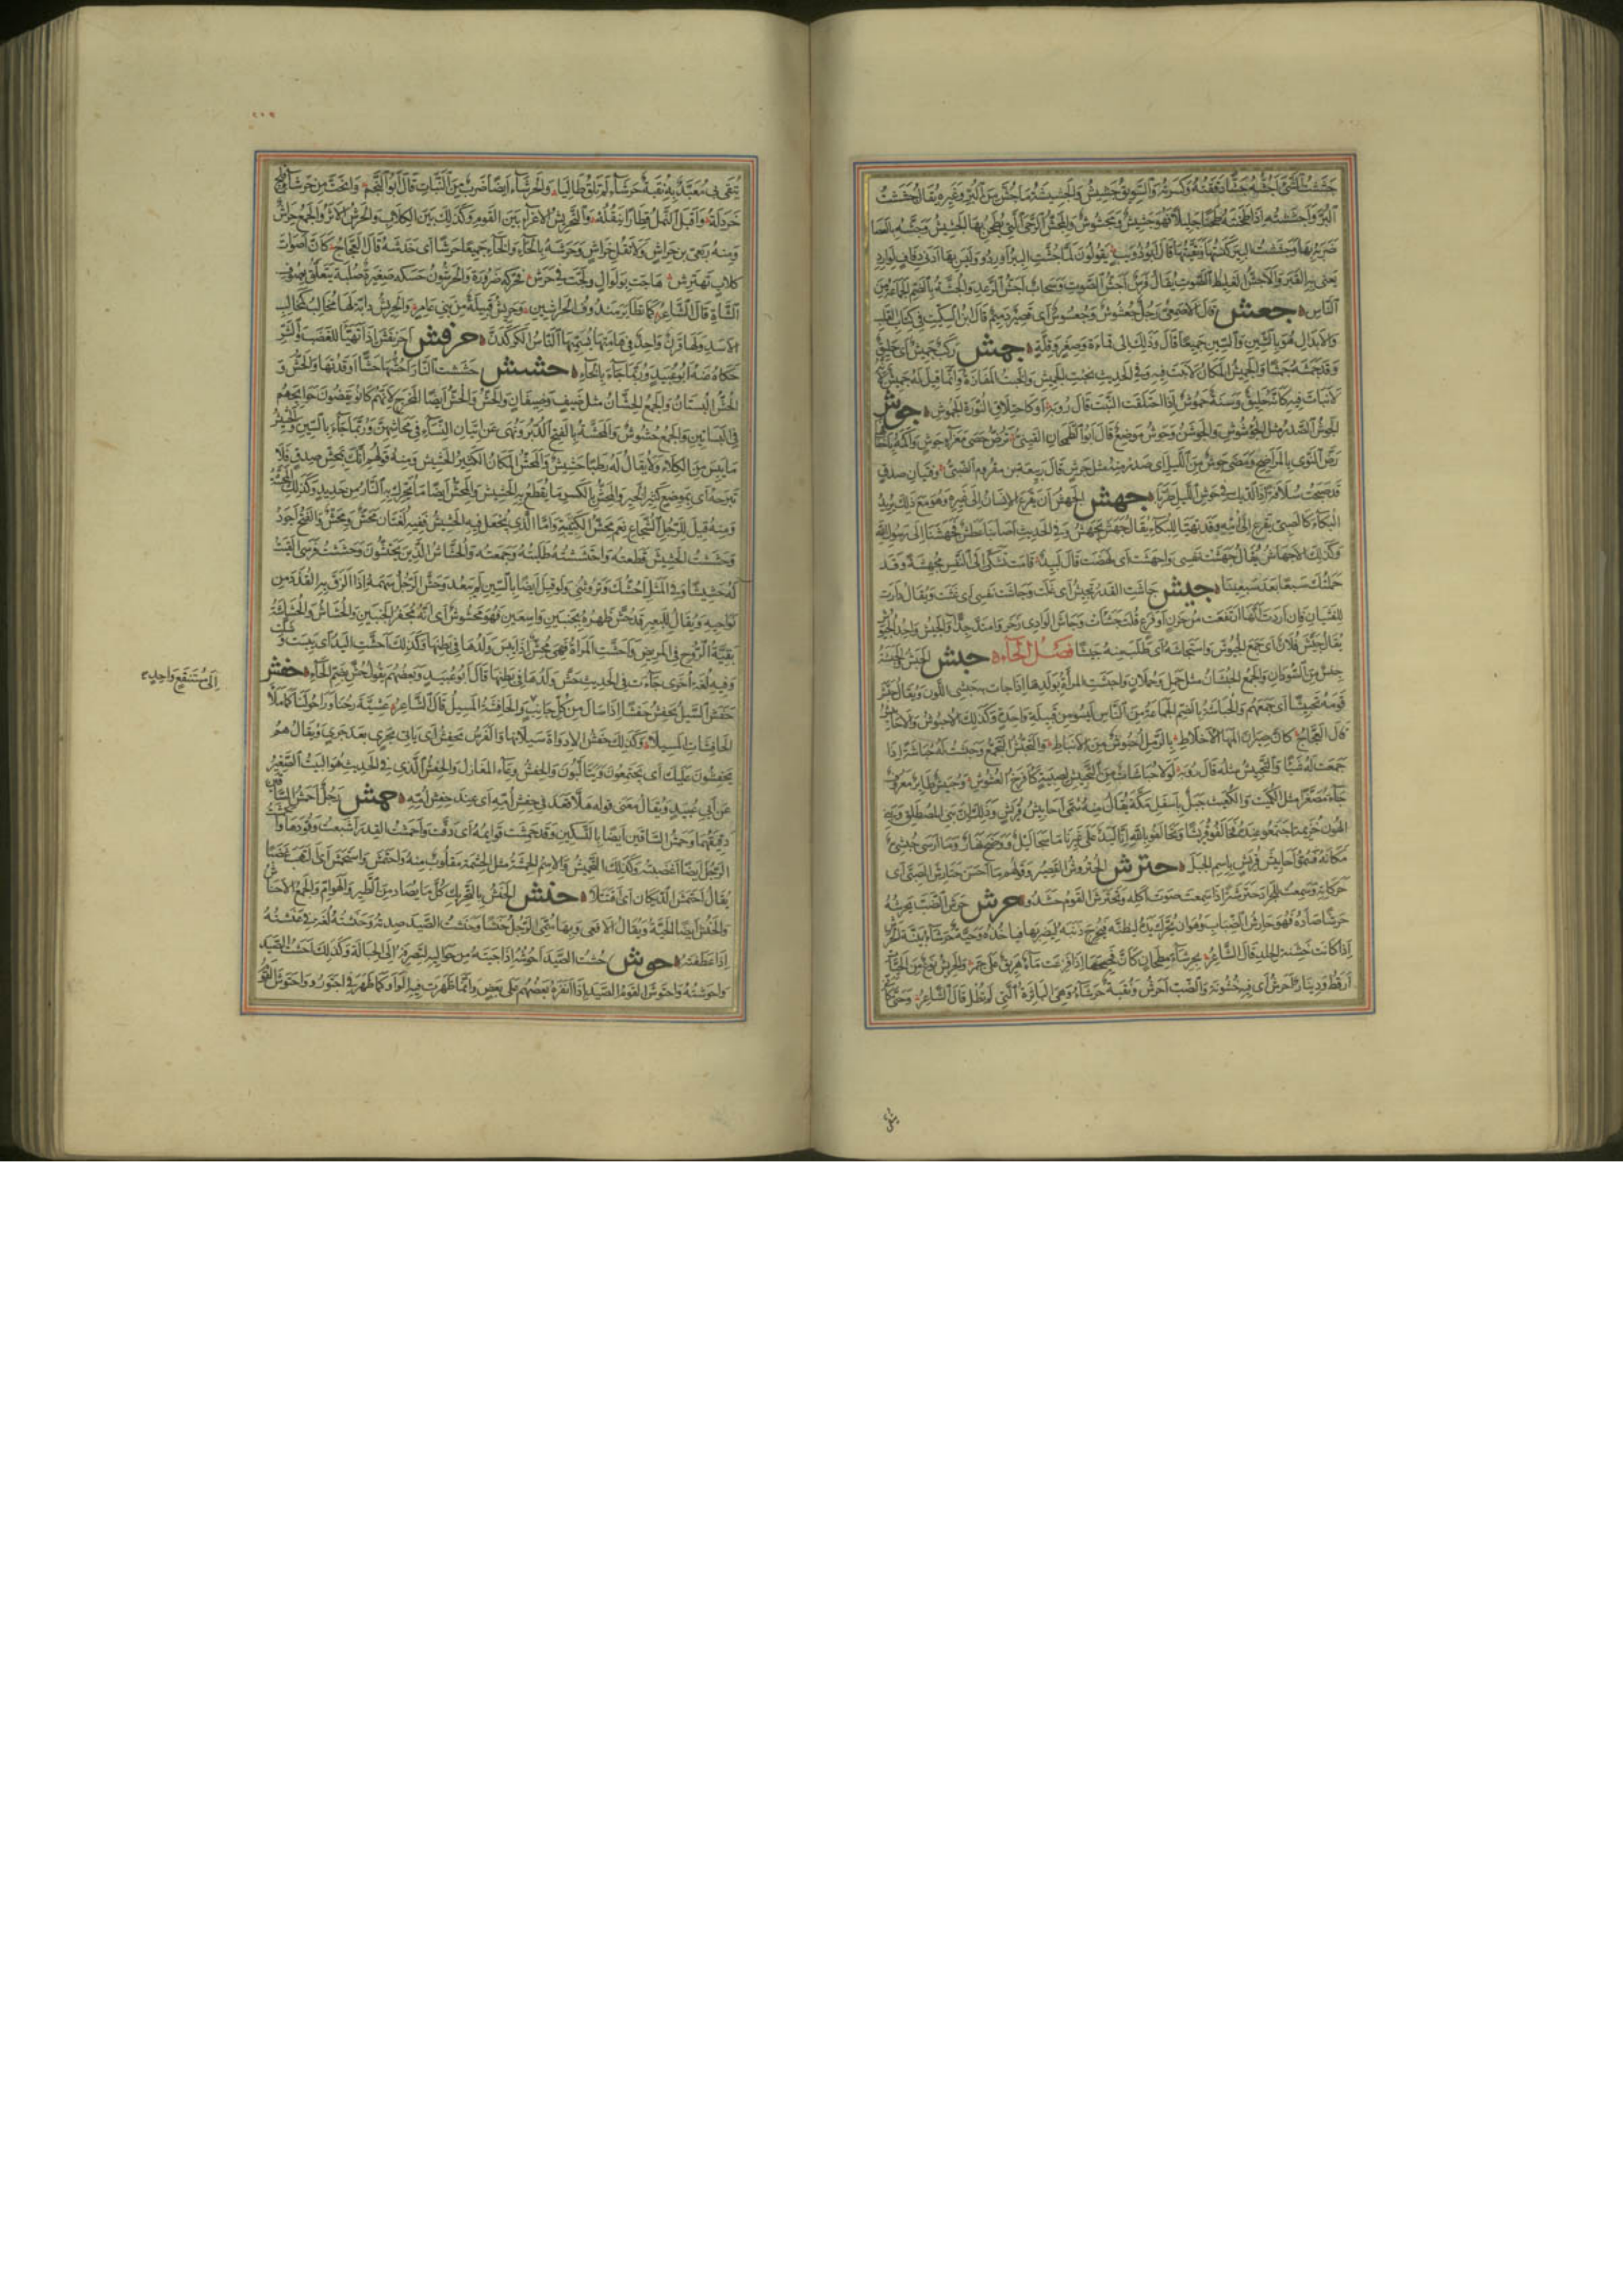 جَشَشْتُ الشَّيْءَ أَجُشُّهُ جَشًّا دَقَقْتُهُ وَكَسَرْتُهُ وَالسَّوِيقُ جَشِيشٌ وَالْجَشِيشَةُ مَا جُشَّ مِنَ الْبُرِّ وَغَيْرِهِ يُقَالُ جَشَشْتُ
الْبُرَّ وَأَجْشَشْتُهُ إِذَا طَحَنْتَهُ طَحْنًا جَلِيلًا فَهُوَ جَشِيشٌ وَمَجْشُوشٌ وَالْمِجَشُّ الرَّحَى الَّتِي يُطْحَنُ بِهَا الْجَشِيشُ وَجَشَّهُ بِالْعَصَا
ضَرَبَهُ بِهَا وَجَشَشْتُ الْبِئْرَ كَنَسْتُهَا وَنَقَّيْتُهَا قَالَ أَبُو ذُؤَيْبٍ يَقُولُونَ لَمَّا جُشَّتِ الْبِئْرُ أَوْرِدُوا وَلَيْسَ بِهَا أَدْنَى ذِفَافٍ لِوَارِدِ
يَعْنِي بِهِ الْقَبْرَ وَالْأَجَشُّ الْغَلِيظُ الصَّوْتِ يُقَالُ فَرَسٌ أَجَشُّ الصَّوْتِ وَسَحَابٌ أَجَشُّ الرَّعْدِ وَالْجُشَّةُ بِالضَّمِّ الْجَمَاعَةُ مِنَ
النَّاسِ جعش قَالَ الْأَصْمَعِيُّ رَجُلٌ جُعْشُوشٌ وَجُعْسُوسٌ أَيْ قَصِيرٌ دَمِيمٌ قَالَ ابْنُ السِّكِّيتِ فِي كِتَابِ الْقَلْبِ
وَالْإِبْدَالِ هُوَ بِالشِّينِ وَالسِّينِ جَمِيعًا قَالَ وَذَلِكَ إِلَى قَمَاءَةٍ وَصِغَرٍ وَقِلَّةٍ جمش رَكَبٌ جَمِيشٌ أَيْ حَلِيقٌ
وَقَدْ جَمَشَهُ جَمْشًا وَالْجَمِيشُ الْمَكَانُ لَا نَبْتَ فِيهِ وَفِي الْحَدِيثِ بِخَبْتِ الْجَمِيشِ وَالْخَبْتُ الْمَفَازَةُ وَإِنَّمَا قِيلَ لَهُ جَمِيشٌ
لِأَنَّهُ لَا نَبَاتَ فِيهِ كَأَنَّهُ حَلِيقٌ وَسَنَةٌ جَمُوشٌ إِذَا احْتَلَقَتِ النَّبْتَ قَالَ رُؤْبَةُ أَوْ كَاحْتِلَاقِ النُّورَةِ الْجَمُوشِ جوش
الْجَوْشُ الصَّدْرُ مِثْلُ الْجُؤْشُوشِ وَالْجَوْشَنِ وَجَوْشُ مَوْضِعٌ قَالَ أَبُو الطَّمَحَانِ الْقَيْنِيُّ تَرُضُّ حَصَى مَعْزَاءِ جَوْشٍ وَأُكْمَهُ
رَضَّ النَّوَى بِالْمَرَاضِحِ وَمَضَى جَوْشٌ مِنَ اللَّيْلِ أَيْ صَدْرٌ مِنْهُ مِثْلُ جَرْشٍ قَالَ رَبِيعَةُ بْنُ مَقْرُومٍ الضَّبِّيُّ وَفِتْيَانِ صِدْقٍ
قَدْ صَبَحْتُ سُلَافَةً إِذَا الدِّيكُ فِي جَوْشٍ مِنَ اللَّيْلِ طَرَّبَا جهش الْجَهْشُ أَنْ يَفْزَعَ الْإِنْسَانُ إِلَى غَيْرِهِ وَهُوَ مَعَ ذَلِكَ يُرِيدُ
الْبُكَاءَ كَالصَّبِيِّ يَفْزَعُ إِلَى أُمِّهِ وَقَدْ تَهَيَّأَ لِلْبُكَاءِ يُقَالُ جَهَشَ يَجْهَشُ وَفِي الْحَدِيثِ أَصَابَنَا عَطَشٌ فَجَهَشْنَا إِلَى رَسُولِ اللَّهِ
وَكَذَلِكَ الْإِجْهَاشُ يُقَالُ جَهَشَتْ نَفْسِي وَأَجْهَشَتْ أَيْ نَهَضَتْ قَالَ لَبِيدٌ قَامَتْ تَشَكَّى إِلَيَّ النَّفْسُ مُجْهِشَةً وَقَدْ
حَمَلْتُكَ سَبْعًا بَعْدَ سَبْعِينَا جيش جَاشَتِ الْقِدْرُ تَجِيشُ أَيْ غَلَتْ وَجَاشَتْ نَفْسِي أَيْ غَثَتْ وَيُقَالُ دَارَتْ
لِلْغَثَيَانِ فَإِنْ أَرَدْتَ أَنَّهَا ارْتَفَعَتْ مِنْ حُزْنٍ أَوْ فَزَعٍ قُلْتَ جَشَأَتْ وَجَاشَ الْوَادِي زَخَرَ وَامْتَدَّ جِدًّا وَالْجَيْشُ وَاحِدُ الْجُيُوشِ
يُقَالُ جَيَّشَ فُلَانٌ أَيْ جَمَعَ الْجُيُوشَ وَاسْتَجَاشَهُ أَيْ طَلَبَ مِنْهُ جَيْشًا فَصْلُ الْحَاءِ حبش الْحَبَشُ وَالْحَبَشَةُ
جِنْسٌ مِنَ السُّودَانِ وَالْجَمْعُ الْحُبْشَانُ مِثْلُ حَمَلٍ وَحُمْلَانٍ وَأَحْبَشَتِ الْمَرْأَةُ بِوَلَدِهَا إِذَا جَاءَتْ بِهِ حَبَشِيَّ اللَّوْنِ وَيُقَالُ حَبَّشَ
قَوْمَهُ تَحْبِيشًا أَيْ جَمَعَهُمْ وَالْحُبَاشَةُ بِالضَّمِّ الْجَمَاعَةُ مِنَ النَّاسِ لَيْسُوا مِنْ قَبِيلَةٍ وَاحِدَةٍ وَكَذَلِكَ الْأُحْبُوشُ وَالْأَحَابِيشُ
قَالَ الْعَجَّاجُ كَأَنَّ صِيرَانَ الْمَهَا الْأَخْلَاطِ بِالرَّمْلِ أُحْبُوشٌ مِنَ الْأَنْبَاطِ وَالتَّحَبُّشُ التَّجَمُّعُ وَحَبَشْتُ لَهُ حُبَاشَةً إِذَا
جَمَعْتَ لَهُ شَيْئًا وَالتَّحْبِيشُ مِثْلُهُ قَالَ رُؤْبَةُ لَوْلَا حُبَاشَاتٌ مِنَ التَّحْبِيشِ لِصِبْيَةٍ كَأَفْرُخِ الْعُشُوشِ وَحُبَيْشٌ طَائِرٌ مَعْرُوفٌ
جَاءَ مُصَغَّرًا مِثْلُ الْكُمَيْتِ وَالْكُعَيْتِ وَحُبْشِيٌّ جَبَلٌ بِأَسْفَلِ مَكَّةَ يُقَالُ مِنْهُ سُمِّيَ أَحَابِيشُ قُرَيْشٍ وَذَلِكَ أَنَّ بَنِي الْمُصْطَلِقِ وَبَنِي
الْهَوْنِ بْنِ خُزَيْمَةَ اجْتَمَعُوا عِنْدَهُ فَحَالَفُوا قُرَيْشًا وَتَحَالَفُوا بِاللَّهِ إِنَّا لَيَدٌ عَلَى غَيْرِنَا مَا سَجَا لَيْلٌ وَوَضَحَ نَهَارٌ وَمَا أَرْسَى حُبْشِيٌّ
مَكَانَهُ فَسُمُّوا أَحَابِيشَ قُرَيْشٍ بِاسْمِ الْجَبَلِ حترش الْحُتْرُوشُ الْقَصِيرُ وَقَوْلُهُمْ مَا أَحْسَنَ حَتَارِشَ الصَّبِيِّ أَيْ
حَرَكَاتِهِ وَسَمِعْتُ لِلْجَرَادِ حَتْرَشَةً إِذَا سَمِعْتَ صَوْتَ أَكْلِهِ وَتَحَتْرَشَ الْقَوْمُ حَشَدُوا حرش حَرَشَ الضَّبَّ يَحْرِشُهُ
حَرْشًا صَادَهُ فَهُوَ حَارِشُ الضِّبَابِ وَهُوَ أَنْ يُحَرِّكَ يَدَهُ لِيَظُنَّهُ حَيَّةً فَيُخْرِجَ ذَنَبَهُ لِيَضْرِبَهَا فَيَأْخُذَهُ وَحَيَّةٌ حَرْشَاءُ بَيِّنَةُ الْحَرَشِ
إِذَا كَانَتْ خَشِنَةَ الْجِلْدِ قَالَ الشَّاعِرُ بِحَرْشَاءَ مِطْحَانٍ كَأَنَّ فَحِيحَهَا إِذَا فَزِعَتْ مَاءٌ هُرِيقَ عَلَى جَمْرِ وَالْحَرِيشُ نَوْعٌ مِنَ الْحَيَّاتِ
أَرْقَطُ وَدِينَارٌ أَحْرَشُ أَيْ فِيهِ خُشُونَةٌ وَالضَّبُّ أَحْرَشُ وَنُقْبَةٌ حَرْشَاءُ وَهِيَ الْبَاثِرَةُ الَّتِي لَمْ تُطْلَ قَالَ الشَّاعِرُ وَحَتَّى كَأَنِّي
يَتَّقِي بِي مُعَبَّدٌ بِهِ نُقْبَةٌ حَرْشَاءُ لَمْ تَلْقَ طَالِيَا وَالْحَرْشَاءُ أَيْضًا ضَرْبٌ مِنَ النَّبَاتِ قَالَ أَبُو النَّجْمِ وَانْحَتَّ مِنْ حَرْشَاءِ فَلْجٍ
خَرْدَلُهْ وَأَقْبَلَ النَّمْلُ قِطَارًا تَنْقُلُهْ وَالتَّحْرِيشُ الْإِغْرَاءُ بَيْنَ الْقَوْمِ وَكَذَلِكَ بَيْنَ الْكِلَابِ وَالْحَرْشُ الْأَثَرُ وَالْجَمْعُ حِرَاشٌ
وَمِنْهُ رِبْعِيُّ بْنُ حِرَاشٍ وَلَا تَقُلْ خِرَاشٌ وَحَرَشَهُ بِالْحَاءِ وَالْخَاءِ جَمِيعًا حَرْشًا أَيْ خَدَشَهُ قَالَ الْعَجَّاجُ كَأَنَّ أَصْوَاتَ
كِلَابٍ تَهْتَرِشْ هَاجَتْ بِوَلْوَالٍ وَلَجَّتْ فِي حَرَشْ فَحَرَّكَهُ ضَرُورَةً وَالْحُرْشُونُ حَسَكَةٌ صَغِيرَةٌ صُلْبَةٌ يَتَعَلَّقُ بِصُوفِ
الشَّاةِ قَالَ الشَّاعِرُ كَمَا تَطَايَرَ مَنْدُوفُ الْحَرَاشِينِ وَحَرِيشٌ قَبِيلَةٌ مِنْ بَنِي عَامِرٍ وَالْحَرِيشُ دَابَّةٌ لَهَا مَخَالِبُ كَمَخَالِبِ
الْأَسَدِ وَلَهَا قَرْنٌ وَاحِدٌ فِي هَامَتِهَا يُسَمِّيهَا النَّاسُ الْكَرْكَدَّنَّ حرفش احْرَنْفَشَ إِذَا تَهَيَّأَ لِلْغَضَبِ وَالشَّرِّ
حَكَاهُ عَنْهُ أَبُو عُبَيْدٍ وَرُبَّمَا جَاءَ بِالْخَاءِ حشش حَشَشْتُ النَّارَ أَحُشُّهَا حَشًّا أَوْقَدْتُهَا وَالْحَشُّ وَ
الْحُشُّ الْبُسْتَانُ وَالْجَمْعُ الْحِشَّانُ مِثْلُ ضَيْفٍ وَضِيفَانٍ وَالْحَشُّ وَالْحُشُّ أَيْضًا الْمَخْرَجُ لِأَنَّهُمْ كَانُوا يَقْضُونَ حَوَائِجَهُمْ
فِي الْبَسَاتِينِ وَالْجَمْعُ حُشُوشٌ وَالْمَحَشَّةُ بِالْفَتْحِ الدُّبُرُ وَنُهِيَ عَنْ إِتْيَانِ النِّسَاءِ فِي مَحَاشِّهِنَّ وَرُبَّمَا جَاءَ بِالسِّينِ وَالْحَشِيشُ
مَا يَبِسَ مِنَ الْكَلَاءِ وَلَا يُقَالُ لَهُ رَطْبًا حَشِيشٌ وَالْمَحَشُّ الْمَكَانُ الْكَثِيرُ الْحَشِيشِ وَمِنْهُ قَوْلُهُمْ إِنَّكَ بِمَحَشِّ صِدْقٍ فَلَا
تَبْرَحْهُ أَيْ بِمَوْضِعٍ كَثِيرِ الْخَيْرِ وَالْمِحَشُّ بِالْكَسْرِ مَا يُقْطَعُ بِهِ الْحَشِيشُ وَالْمِحَشُّ أَيْضًا مَا تُحَرَّكُ بِهِ النَّارُ مِنْ حَدِيدٍ وَكَذَلِكَ الْمِحَشَّةُ
وَمِنْهُ قِيلَ لِلرَّجُلِ الشُّجَاعِ نِعْمَ مِحَشُّ الْكَتِيبَةِ وَأَمَّا الَّذِي يُجْعَلُ فِيهِ الْحَشِيشُ فَفِيهِ لُغَتَانِ مَحَشٌّ وَمِحَشٌّ وَالْفَتْحُ أَجْوَدُ
وَحَشَشْتُ الْحَشِيشَ قَطَعْتُهُ وَاحْتَشَشْتُهُ طَلَبْتُهُ وَجَمَعْتُهُ وَالْحُشَّاشُ الَّذِينَ يَحْتَشُّونَ وَحَشَشْتُ فَرَسِي أَلْقَيْتُ
لَهُ حَشِيشًا وَفِي الْمَثَلِ أَحُشُّكَ وَتَرُوثُنِي وَلَوْ قِيلَ أَيْضًا بِالسِّينِ لَمْ يَبْعُدْ وَحَشَّ الرَّجُلُ سَهْمَهُ إِذَا أَلْزَقَ بِهِ الْقُذَذَ مِنْ
نَوَاحِيهِ وَيُقَالُ لِلْبَعِيرِ قَدْ حُشَّ ظَهْرُهُ بِجَنْبَيْنِ وَاسِعَيْنِ فَهُوَ مَحْشُوشٌ أَيْ أَنَّهُ مُجْفَرُ الْجَنْبَيْنِ وَالْحُشَاشُ وَالْحُشَاشَةُ
بَقِيَّةُ الرُّوحِ فِي الْمَرِيضِ وَأَحَشَّتِ الْمَرْأَةُ فَهِيَ مُحِشٌّ إِذَا يَبِسَ وَلَدُهَا فِي بَطْنِهَا وَكَذَلِكَ أَحَشَّتِ الْيَدُ أَيْ يَبِسَتْ وَشَلَّتْ
وَفِيهِ لُغَةٌ أُخْرَى جَاءَتْ فِي الْحَدِيثِ حَشَّ وَلَدُهَا فِي بَطْنِهَا قَالَ أَبُو عُبَيْدٍ وَبَعْضُهُمْ يَقُولُ حُشَّ بِضَمِّ الْحَاءِ حفش
حَفَشَ السَّيْلُ يَحْفِشُ حَفْشًا إِذَا سَالَ مِنْ كُلِّ جَانِبٍ وَالْحَافِشَةُ الْمَسِيلُ قَالَ الشَّاعِرُ عَشِيَّةَ رُحْنَا وَرَاحُوا لَنَا كَمَا مَلَأَ
الْحَافِشَاتُ الْمَسِيلَا وَكَذَلِكَ حَفْشُ الْإِدَاوَةِ سَيَلَانُهَا وَالْفَرَسُ يَحْفِشُ أَيْ يَأْتِي بِجَرْيٍ بَعْدَ جَرْيٍ وَيُقَالُ هُمْ
يَحْفِشُونَ عَلَيْكَ أَيْ يَجْتَمِعُونَ وَيَتَأَلَّبُونَ وَالْحِفْشُ وِعَاءُ الْمَغَازِلِ وَالْحِفْشُ الَّذِي فِي الْحَدِيثِ هُوَ الْبَيْتُ الصَّغِيرُ
عَنْ أَبِي عُبَيْدٍ وَيُقَالُ مَعْنَى قَوْلِهِ هَلَّا قَعَدَ فِي حِفْشِ أُمِّهِ أَيْ عِنْدَ حِفْشِ أُمِّهِ حمش رَجُلٌ أَحْمَشُ السَّاقَيْنِ
دَقِيقُهُمَا وَحَمْشُ السَّاقَيْنِ أَيْضًا بِالتَّسْكِينِ وَقَدْ حَمِشَتْ قَوَائِمُهُ أَيْ دَقَّتْ وَأَحْمَشْتُ الْقِدْرَ أَشْبَعْتُ وَقُودَهَا وَأَحْمَشْتُ
الرَّجُلَ أَيْضًا أَغْضَبْتُهُ وَكَذَلِكَ التَّحْمِيشُ وَالِاسْمُ الْحِمْشَةُ مِثْلُ الْحِشْمَةِ مَقْلُوبٌ مِنْهُ وَاحْتَمَشَ وَاسْتَحْمَشَ أَيْ الْتَهَبَ غَضَبًا
يُقَالُ احْتَمَشَ الدِّيكَانِ أَيْ اقْتَتَلَا حنش الْحَنَشُ بِالتَّحْرِيكِ كُلُّ مَا يُصَادُ مِنَ الطَّيْرِ وَالْهَوَامِّ وَالْجَمْعُ الْأَحْنَاشُ
وَالْحَنَشُ أَيْضًا الْحَيَّةُ وَيُقَالُ الْأَفْعَى وَبِهَا سُمِّيَ الرَّجُلُ حَنَشًا وَحَنَشْتُ الصَّيْدَ صِدْتُهُ وَحَنَشْتُهُ لُغَةٌ فِي عَنَشْتُهُ
إِذَا عَطَفْتَهُ حوش حُشْتُ الصَّيْدَ أَحُوشُهُ إِذَا جِئْتَهُ مِنْ حَوَالَيْهِ لِتَصْرِفَهُ إِلَى الْحِبَالَةِ وَكَذَلِكَ أَحَشْتُ الصَّيْدَ
وَأَحْوَشْتُهُ وَاحْتَوَشَ الْقَوْمُ الصَّيْدَ إِذَا أَنْفَرَهُ بَعْضُهُمْ عَلَى بَعْضٍ وَإِنَّمَا ظَهَرَتْ فِيهِ الْوَاوُ كَمَا ظَهَرَ فِي اجْتَوَرُوا وَاحْتَوَشَ الْقَوْمُ
إِلَى مُسْتَنْقَعٍ وَاحِدٍ